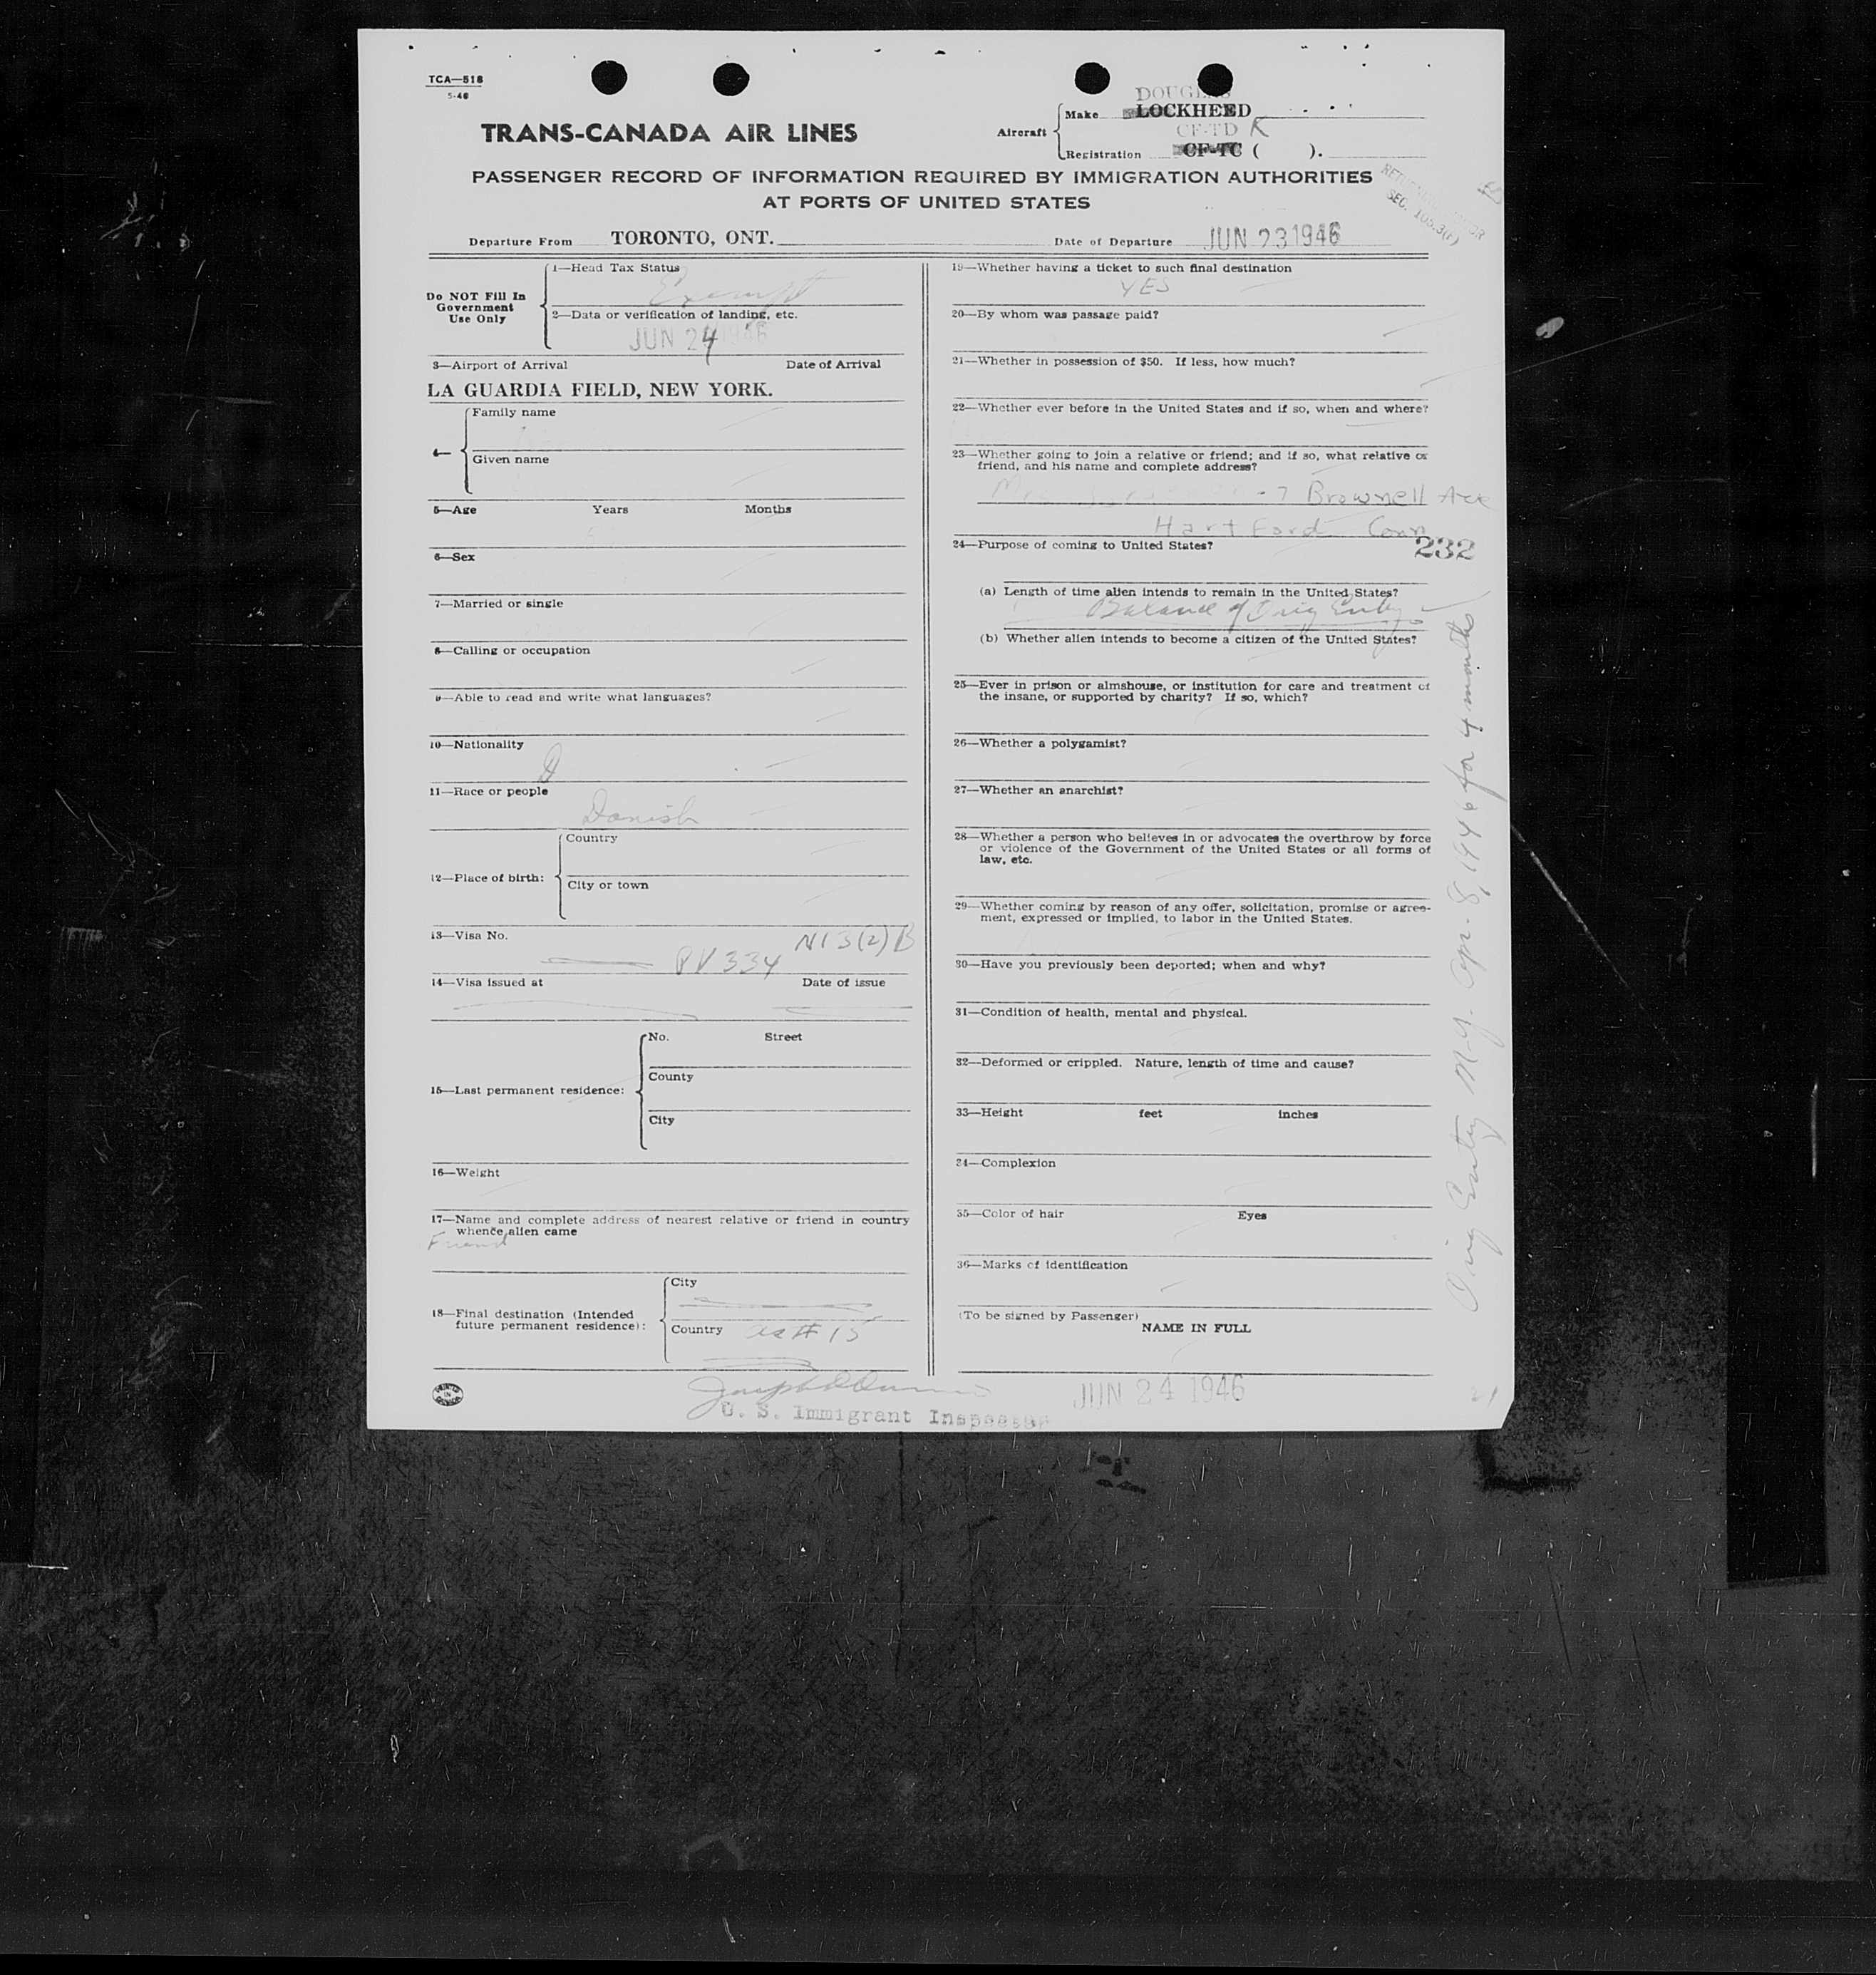 TCA—518
5-46
DOUGLAS
Aircraft Make LOCKHEED
CF-TD K
Registration CF-TC ( ).
TRANS-CANADA AIR LINES
PASSENGER RECORD OF INFORMATION REQUIRED BY IMMIGRATION AUTHORITIES
AT PORTS OF UNITED STATES
SEC.
Departure From TORONTO, ONT. Date of Departure JUN 23 1946
Do NOT Fill In
Government
Use Only
1—Head Tax Status
Exempt
2—Data or verification of landing, etc.
JUN 24 1946
3—Airport of Arrival Date of Arrival
LA GUARDIA FIELD, NEW YORK.
4—
Family name
Given name
5—Age Years Months
6—Sex
7—Married or single
8—Calling or occupation
9—Able to read and write what languages?
10—Nationality
D
11—Race or people
Danish
12—Place of birth:
Country
City or town
13—Visa No.
PV 334 NI 3(2) B
14—Visa issued at Date of issue
15—Last permanent residence:
No. Street
County
City
16—Weight
17—Name and complete address of nearest relative or friend in country
whence alien came
Friend
18—Final destination (Intended
future permanent residence):
City
Country as # 15
19—Whether having a ticket to such final destination
YES
20—By whom was passage paid?
21—Whether in possession of $50. If less, how much?
22—Whether ever before in the United States and if so, when and where?
23—Whether going to join a relative or friend; and if so, what relative or
friend, and his name and complete address?
- 7 Brownell Ave
Hartford Conn
232
24—Purpose of coming to United States?
(a) Length of time alien intends to remain in the United States?
Balance of Orig Entry
(b) Whether alien intends to become a citizen of the United States?
25—Ever in prison or almshouse, or institution for care and treatment of
the insane, or supported by charity? If so, which?
26—Whether a polygamist?
27—Whether an anarchist?
28—Whether a person who believes in or advocates the overthrow by force
or violence of the Government of the United States or all forms of
law, etc.
29—Whether coming by reason of any offer, solicitation, promise or agree-
ment, expressed or implied, to labor in the United States.
30—Have you previously been deported; when and why?
31—Condition of health, mental and physical.
32—Deformed or crippled. Nature, length of time and cause?
33—Height feet inches
34—Complexion
35—Color of hair Eyes
36—Marks of identification
(To be signed by Passenger)
NAME IN FULL
Orig Entry N.Y. Apr. 8, 1946 for 4 months
PRINTED
IN
CANADA
JUN 24 1946
U. S. Immigrant Inspector